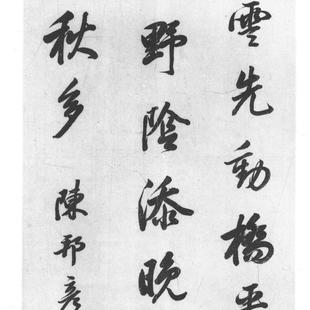 雲先動橋平
野陰添晚
秋多
陳邦彥